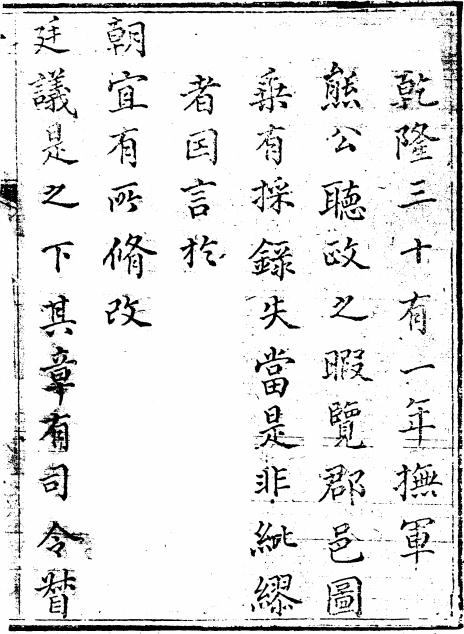 乾隆三十有一年撫軍
熊公聽政之暇覽郡邑圖
乘有採錄失當是非紕繆
者因言於
朝宜有所脩改
廷議是之下其章有司令督